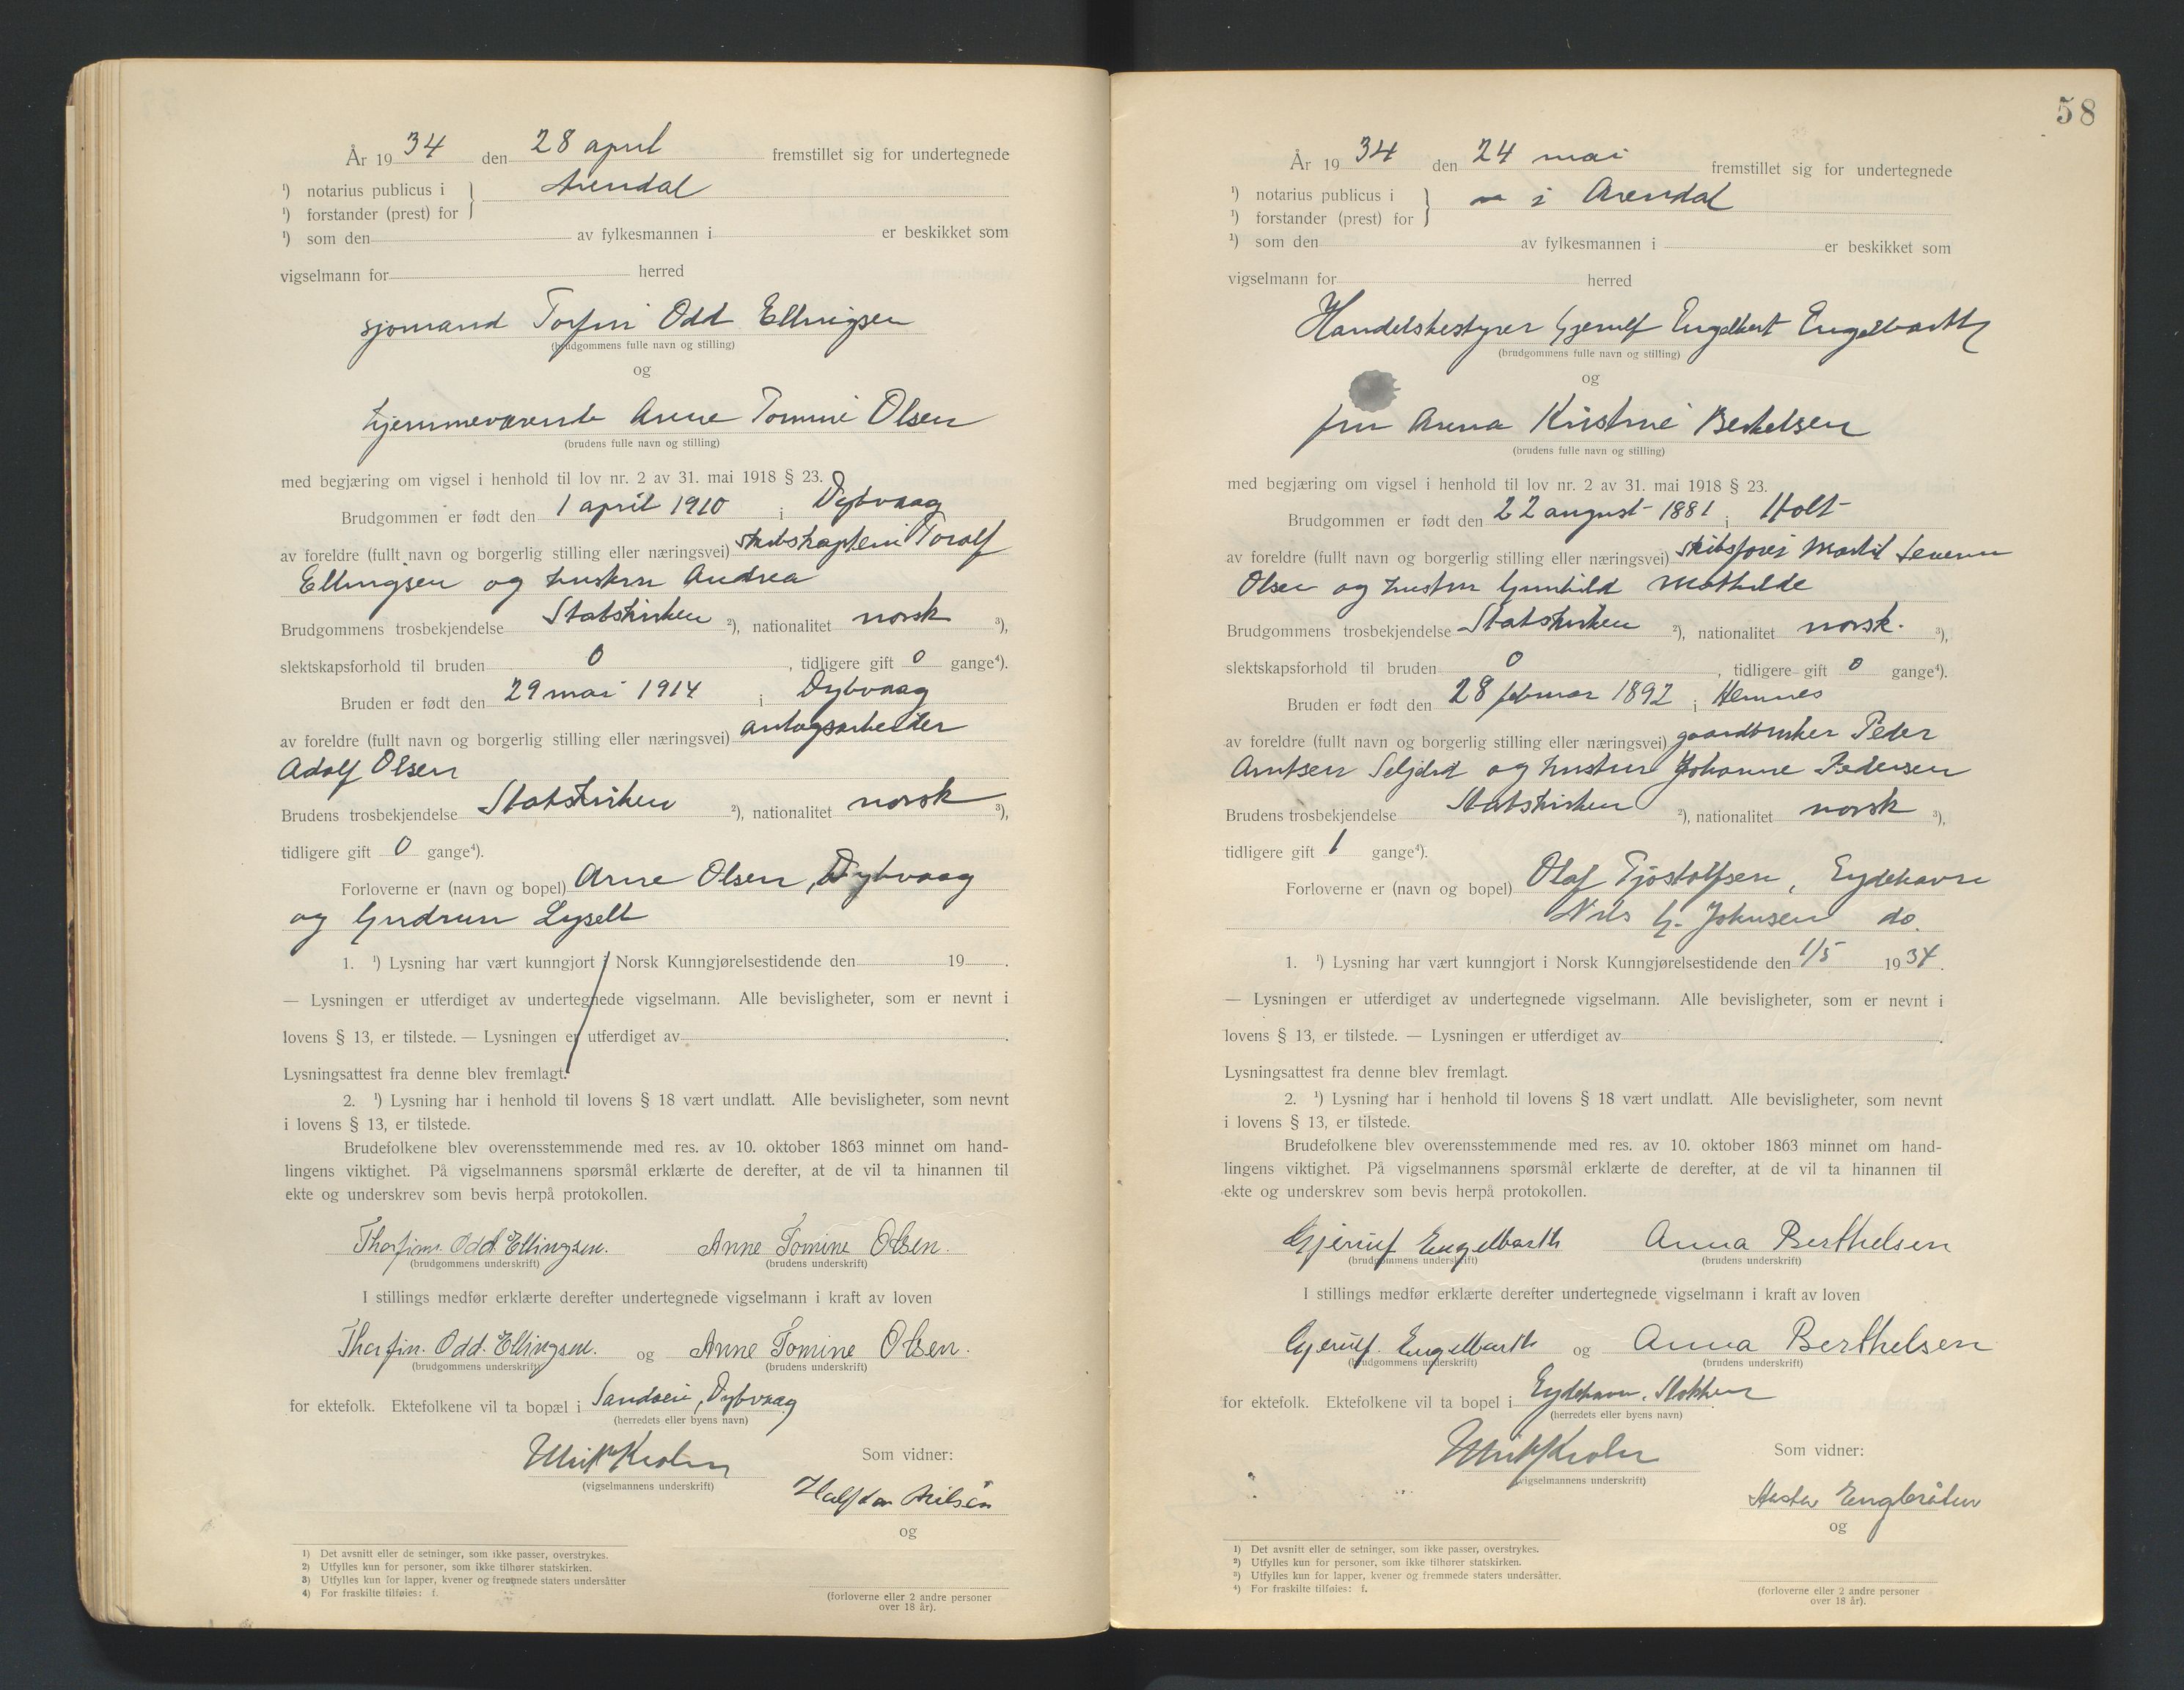 År 1934 den 28 april fremstillet sig for undertegnede
¹) notarius publicus i Arendal
¹) forstander (prest) for
¹) som den av fylkesmannen i er beskikket som
vigselmann for herred
sjømand Torfin Odd Ellingsen
(brudgommens fulle navn og stilling)
og
hjemmeværende Anne Tomine Olsen
(brudens fulle navn og stilling)
med begjæring om vigsel i henhold til lov nr. 2 av 31. mai 1918 § 23.
Brudgommen er født den 1 april 1910 i Dybvaag
av foreldre (fullt navn og borgerlig stilling eller næringsvei) skibskaptein Toralf
Ellingsen og hustru Andrea
Brudgommens trosbekjendelse Statskirken ²), nationalitet norsk ³),
slektskapsforhold til bruden 0, tidligere gift 0 gange⁴).
Bruden er født den 29 mai 1914 i Dybvaag
av foreldre (fullt navn og borgerlig stilling eller næringsvei) anlægsarbeider
Adolf Olsen
Brudens trosbekjendelse Statskirken ²), nationalitet norsk ³),
tidligere gift 0 gange⁴).
Forloverne er (navn og bopel) Arne Olsen, Dybvaag
og Gudrun
1. ¹) Lysning har vært kunngjort i Norsk Kunngjørelsestidende den 19 .
— Lysningen er utferdiget av undertegnede vigselmann. Alle bevisligheter, som er nevnt i
lovens § 13, er tilstede. — Lysningen er utferdiget av .
Lysningsattest fra denne blev fremlagt.
2. ¹) Lysning har i henhold til lovens § 18 vært undlatt. Alle bevisligheter, som nevnt
i lovens § 13, er tilstede.
Brudefolkene blev overensstemmende med res. av 10. oktober 1863 minnet om hand-
lingens viktighet. På vigselmannens spørsmål erklærte de derefter, at de vil ta hinannen til
ekte og underskrev som bevis herpå protokollen.
Thorfinn Odd Ellingsen. Anne Tomine Olsen.
(brudgommens underskrift) (brudens underskrift)
I stillings medfør erklærte derefter undertegnede vigselmann i kraft av loven
Thorfin. Odd. Ellingsen. og Anne Tomine Olsen.
(brudgommens underskrift) (brudens underskrift)
for ektefolk. Ektefolkene vil ta bopæl i Sandøen, Dybvaag
(herredets eller byens navn)
Som vidner:
(vigselmannens underskrift)
Halfdan Nilsen
og
(forloverne eller 2 andre personer
over 18 år).
1) Det avsnitt eller de setninger, som ikke passer, overstrykes.
2) Utfylles kun for personer, som ikke tilhører statskirken.
3) Utfylles kun for lapper, kvener og fremmede staters undersåtter
4) For fraskilte tilføies: f.
58
År 1934 den 24 mai fremstillet sig for undertegnede
¹) notarius publicus i i Arendal
¹) forstander (prest) for
¹) som den av fylkesmannen i er beskikket som
vigselmann for herred
Handelsbestyrer Gjerulf Engelbert Engelbarth
(brudgommens fulle navn og stilling)
og
fru Anna Kristine Bertelsen
(brudens fulle navn og stilling)
med begjæring om vigsel i henhold til lov nr. 2 av 31. mai 1918 § 23.
Brudgommen er født den 22 august 1881 i Holt
av foreldre (fullt navn og borgerlig stilling eller næringsvei) skibsfører Martil Severin
Olsen og hustru Gunhild Mathilde
Brudgommens trosbekjendelse Statskirken ²), nationalitet norsk. ³),
slektskapsforhold til bruden 0, tidligere gift 0 gange⁴).
Bruden er født den 28 februar 1892 i Hemnes
av foreldre (fullt navn og borgerlig stilling eller næringsvei) gaardbruker Peder
Arntsen og hustru Johanne Pedersen
Brudens trosbekjendelse Statskirken ²), nationalitet norsk ³),
tidligere gift 1 gange⁴).
Forloverne er (navn og bopel) Olaf Tjøstolfsen, Eydehavn
Nils G. Johnsen do.
1. ¹) Lysning har vært kunngjort i Norsk Kunngjørelsestidende den 1/5 1934.
— Lysningen er utferdiget av undertegnede vigselmann. Alle bevisligheter, som er nevnt i
lovens § 13, er tilstede. — Lysningen er utferdiget av .
Lysningsattest fra denne blev fremlagt.
2. ¹) Lysning har i henhold til lovens § 18 vært undlatt. Alle bevisligheter, som nevnt
i lovens § 13, er tilstede.
Brudefolkene blev overensstemmende med res. av 10. oktober 1863 minnet om hand-
lingens viktighet. På vigselmannens spørsmål erklærte de derefter, at de vil ta hinannen til
ekte og underskrev som bevis herpå protokollen.
Gjerulf Engelbarth Anna Berthelsen
(brudgommens underskrift) (brudens underskrift)
I stillings medfør erklærte derefter undertegnede vigselmann i kraft av loven
Gjerulf. Engelbarth og Anna Berthelsen
(brudgommens underskrift) (brudens underskrift)
for ektefolk. Ektefolkene vil ta bopel i Eydehavn, Stokken
(herredets eller byens navn)
Som vidner:
(vigselmannens underskrift)
Aasta Engbråten
og
(forloverne eller 2 andre personer
over 18 år).
1) Det avsnitt eller de setninger, som ikke passer, overstrykes.
2) Utfylles kun for personer, som ikke tilhører statskirken.
3) Utfylles kun for lapper, kvener og fremmede staters undersåtter.
4) For fraskilte tilføies: f.